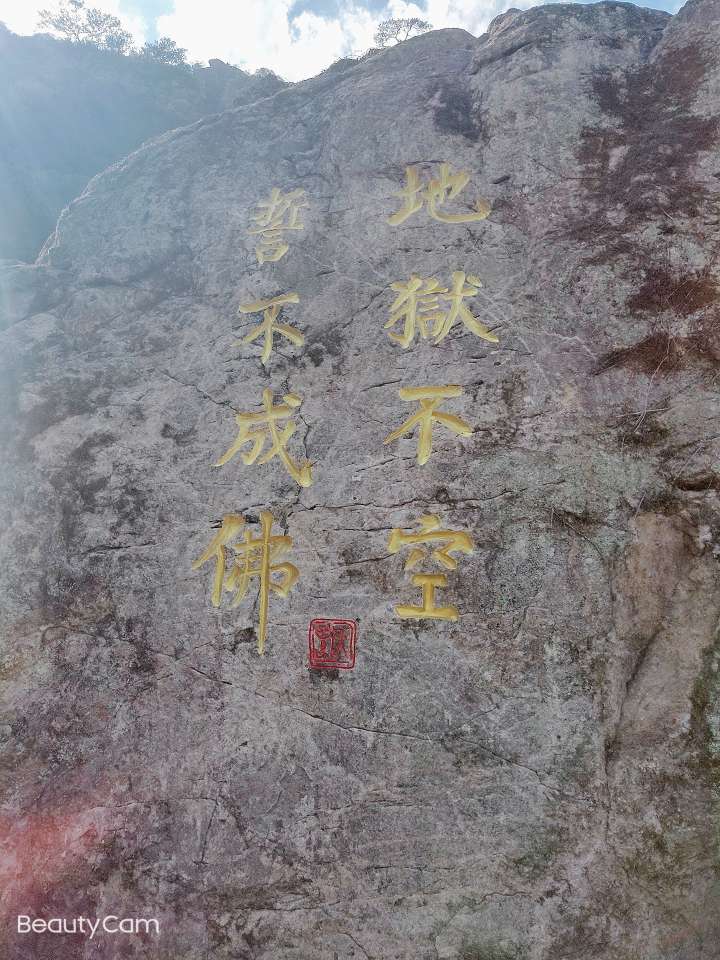 地獄不空
誓不成佛
BeautyCam